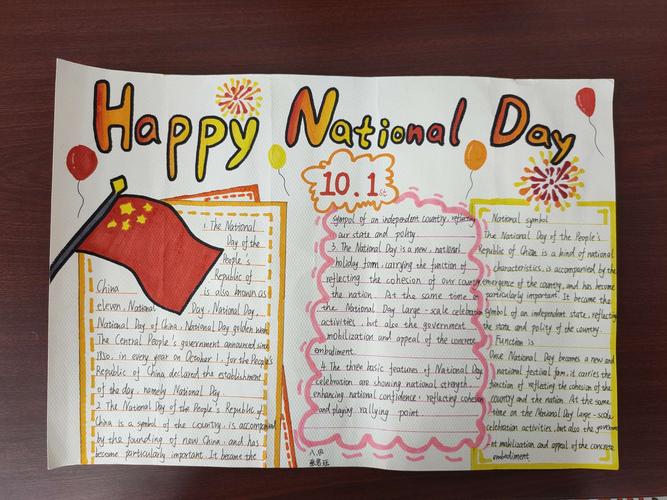 Happy National Day
10.1st
1. The National
Day of the
People's
Republic of
China is also known as
eleven, National Day, National Day,
National Day of China, National Day golden week
The Central People's government announced since
1950, in every year on October 1, for the People's
Republic of China declared the establishment
of the day, namely National Day
2. The National Day of the People's Republic of
China is a symbol of the country, is accompanied
by the founding of new China, and has
become particularly important. It became the
symbol of an independent country, reflecting
our state and polity.
3. The National Day is a new, national
holiday form, carrying the function of
reflecting the cohesion of our country
the nation. At the same time on
the National Day large-scale celebration
activities, but also the government
mobilization and appeal of the concrete
embodiment.
4. The three basic features of National Day
celebration are showing national strength.
enhancing national confidence, reflecting cohesion
and playing rallying point
National symbol
The National Day of the People's
Republic of China is a kind of national
characteristics, is accompanied by the
emergence of the country, and has become
particularly important. It became the
symbol of an independent state, reflecting
the state and polity of the country.
Function is
Once National Day becomes a new and
national festival form, it carries the
function of reflecting the cohesion of the
country and the nation. At the same
time on the National Day large-scale
celebration activities, but also the government
mobilization and appeal of the concrete
embodiment